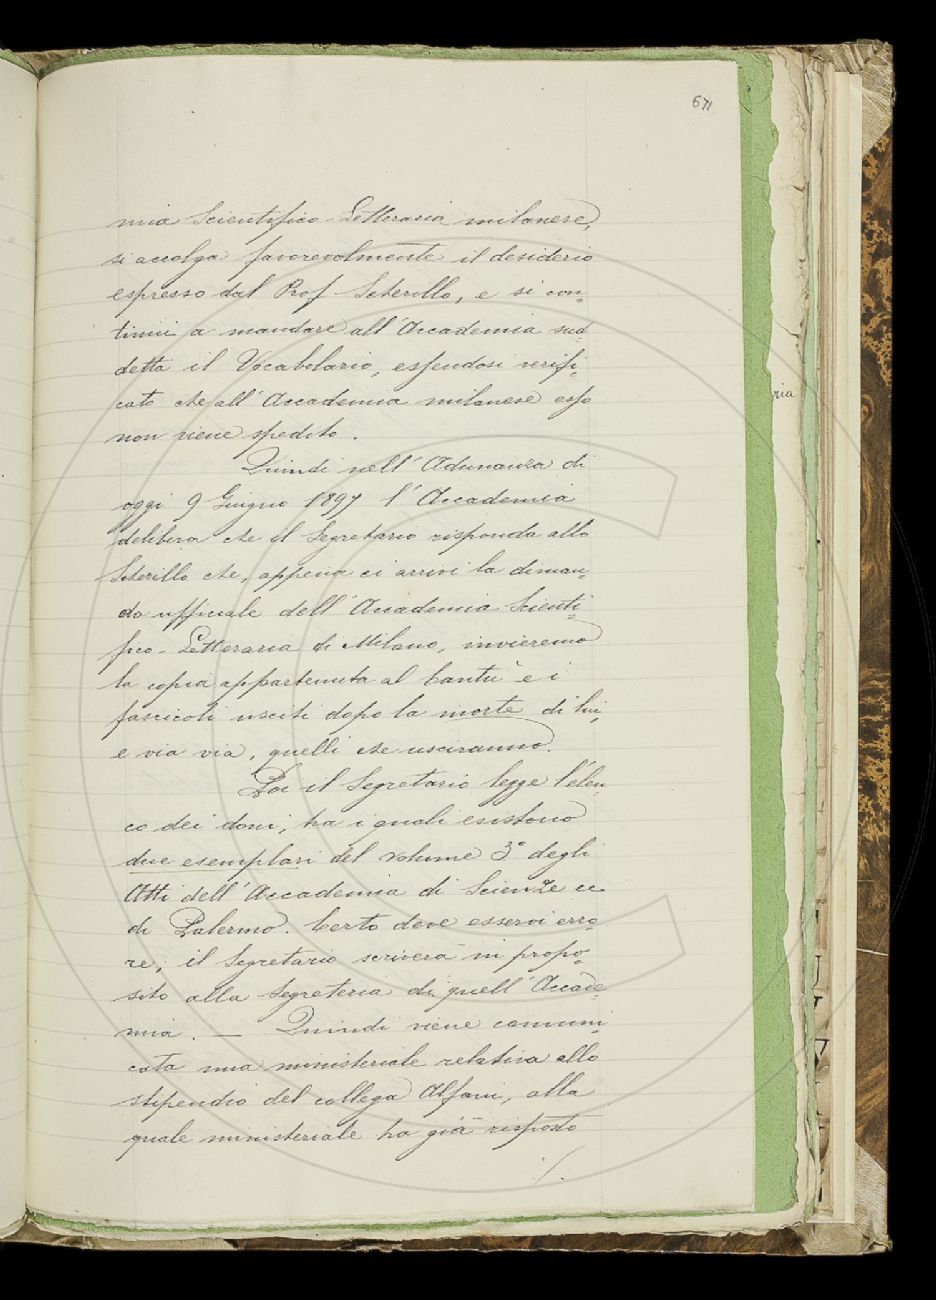 671
mia Scientifico-Letteraria milanese,
si accolga favorevolmente il desiderio
espresso dal Prof Scherillo, e si con=
tinui a mandare all'Accademia sud=
detta il Vocabolario, essendosi verifi=
cato che all'Accademia milanese esso
non viene spedito.
Quindi nell'Adunanza di
oggi 9 Giugno 1897 l'Accademia
delibera che il Segretario risponda allo
Scherillo che, appena ci arrivi la diman=
da ufficiale dell'Accademia Scienti=
fico-Letteraria di Milano, invieremo
la copia appartenuta al Cantù e i
fascicoli usciti dopo la morte di lui,
e via via, quelli che usciranno.
Poi il Segretario legge l'elen=
co dei doni, tra i quali esistono
due esemplari del volume 3° degli
Atti dell'Accademia di Scienze ec
di Palermo. Certo deve esservi erro=
re; il Segretario scriverà in propo=
sito alla Segreteria di quell'Accade=
mia. — Quindi viene comuni=
cata una ministeriale relativa allo
stipendio del collega Alfani, alla
quale ministeriale ha già risposto
./.
ria